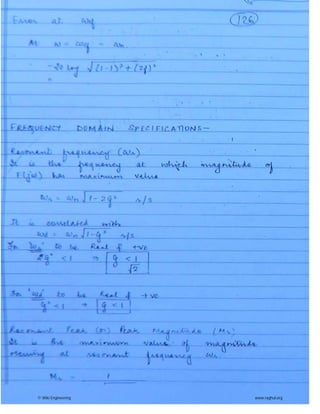 Error at ωcf
(126)
At ω = ωcf = ωn
-20 log √(1-1)² + (2ξ)²
=
FREQUENCY DOMAIN SPECIFICATIONS—
Resonant frequency (ωr)
It is the frequency at which magnitude of
F(jω) has maximum value
ωr = ωn √1-2ξ² r/s
It is correlated with
ωd = ωn √1-ξ² r/s
For 'ωr' to be Real & +ve
2ξ² < 1 ⇒ ξ < 1/√2
For 'ωd' to be Real & +ve
ξ² < 1 → ξ < 1
Resonant Peak (or) Peak Magnitude (Mr)
It is the maximum value of magnitude
occuring at resonant frequency ωr
Mr = 1
© Wiki Engineering
www.raghul.org